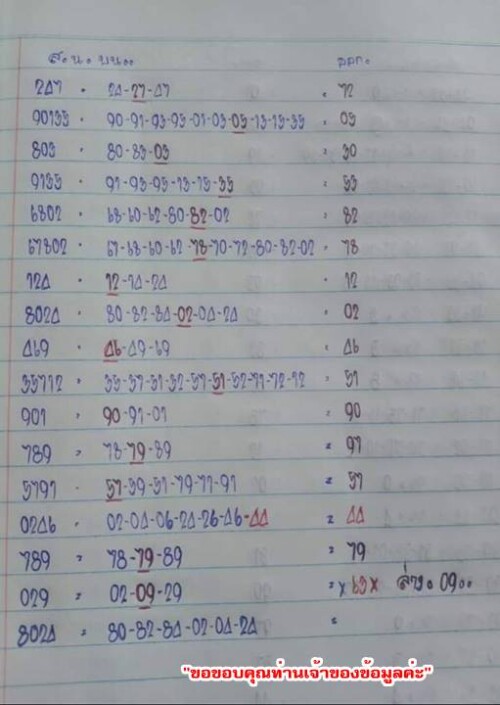 ส.น. บน.. ออก.
247 . 24-27-47 . 72
90135 . 90-91-93-95-01-03-05-13-15-35 : 05
803 . 80-83-03 : 30
9135 . 91-93-95-13-15-35 : 53
6802 . 68-60-62-80-82-02 : 82
67802 . 67-68-60-62-78-70-72-80-82-02 : 78
124 . 12-14-24 . 12
8024 . 80-82-84-02-04-24 : 02
469 . 46-49-69 . 46
35712 : 35-37-31-32-57-51-52-71-72-12 : 51
901 : 90-91-01 : 90
789 : 78-79-89 = 97
5791 . 57-59-51-79-71-91 = 57
0246 . 02-04-06-24-26-46-44 = 44
789 = 78-79-89 = 79
029 = 02-09-29 = x69x ล่าง. 09..
8024 = 80-82-84-02-04-24 =
"ขอขอบคุณท่านเจ้าของข้อมูลค่ะ"